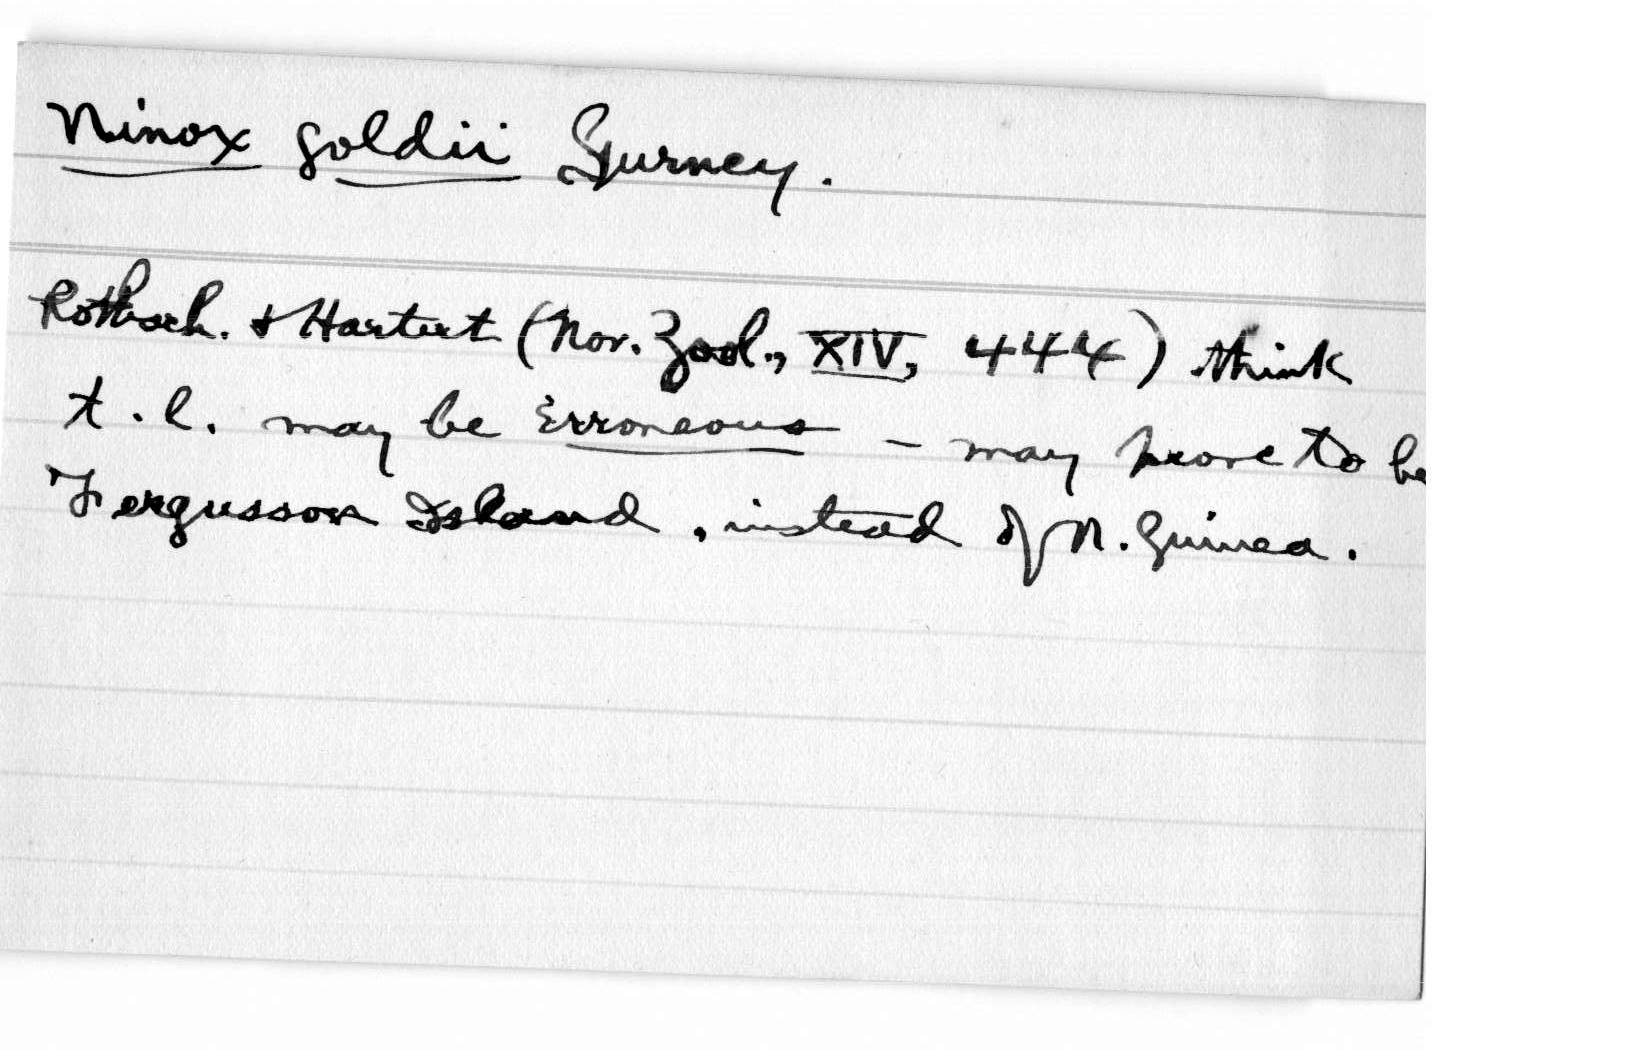 Ninox goldii Gurney.
Rothsch. & Hartert (Nov. Zool., XIV, 444) think
t.l. may be erroneous – may prove to be
Fergusson Island, instead of N. Guinea.